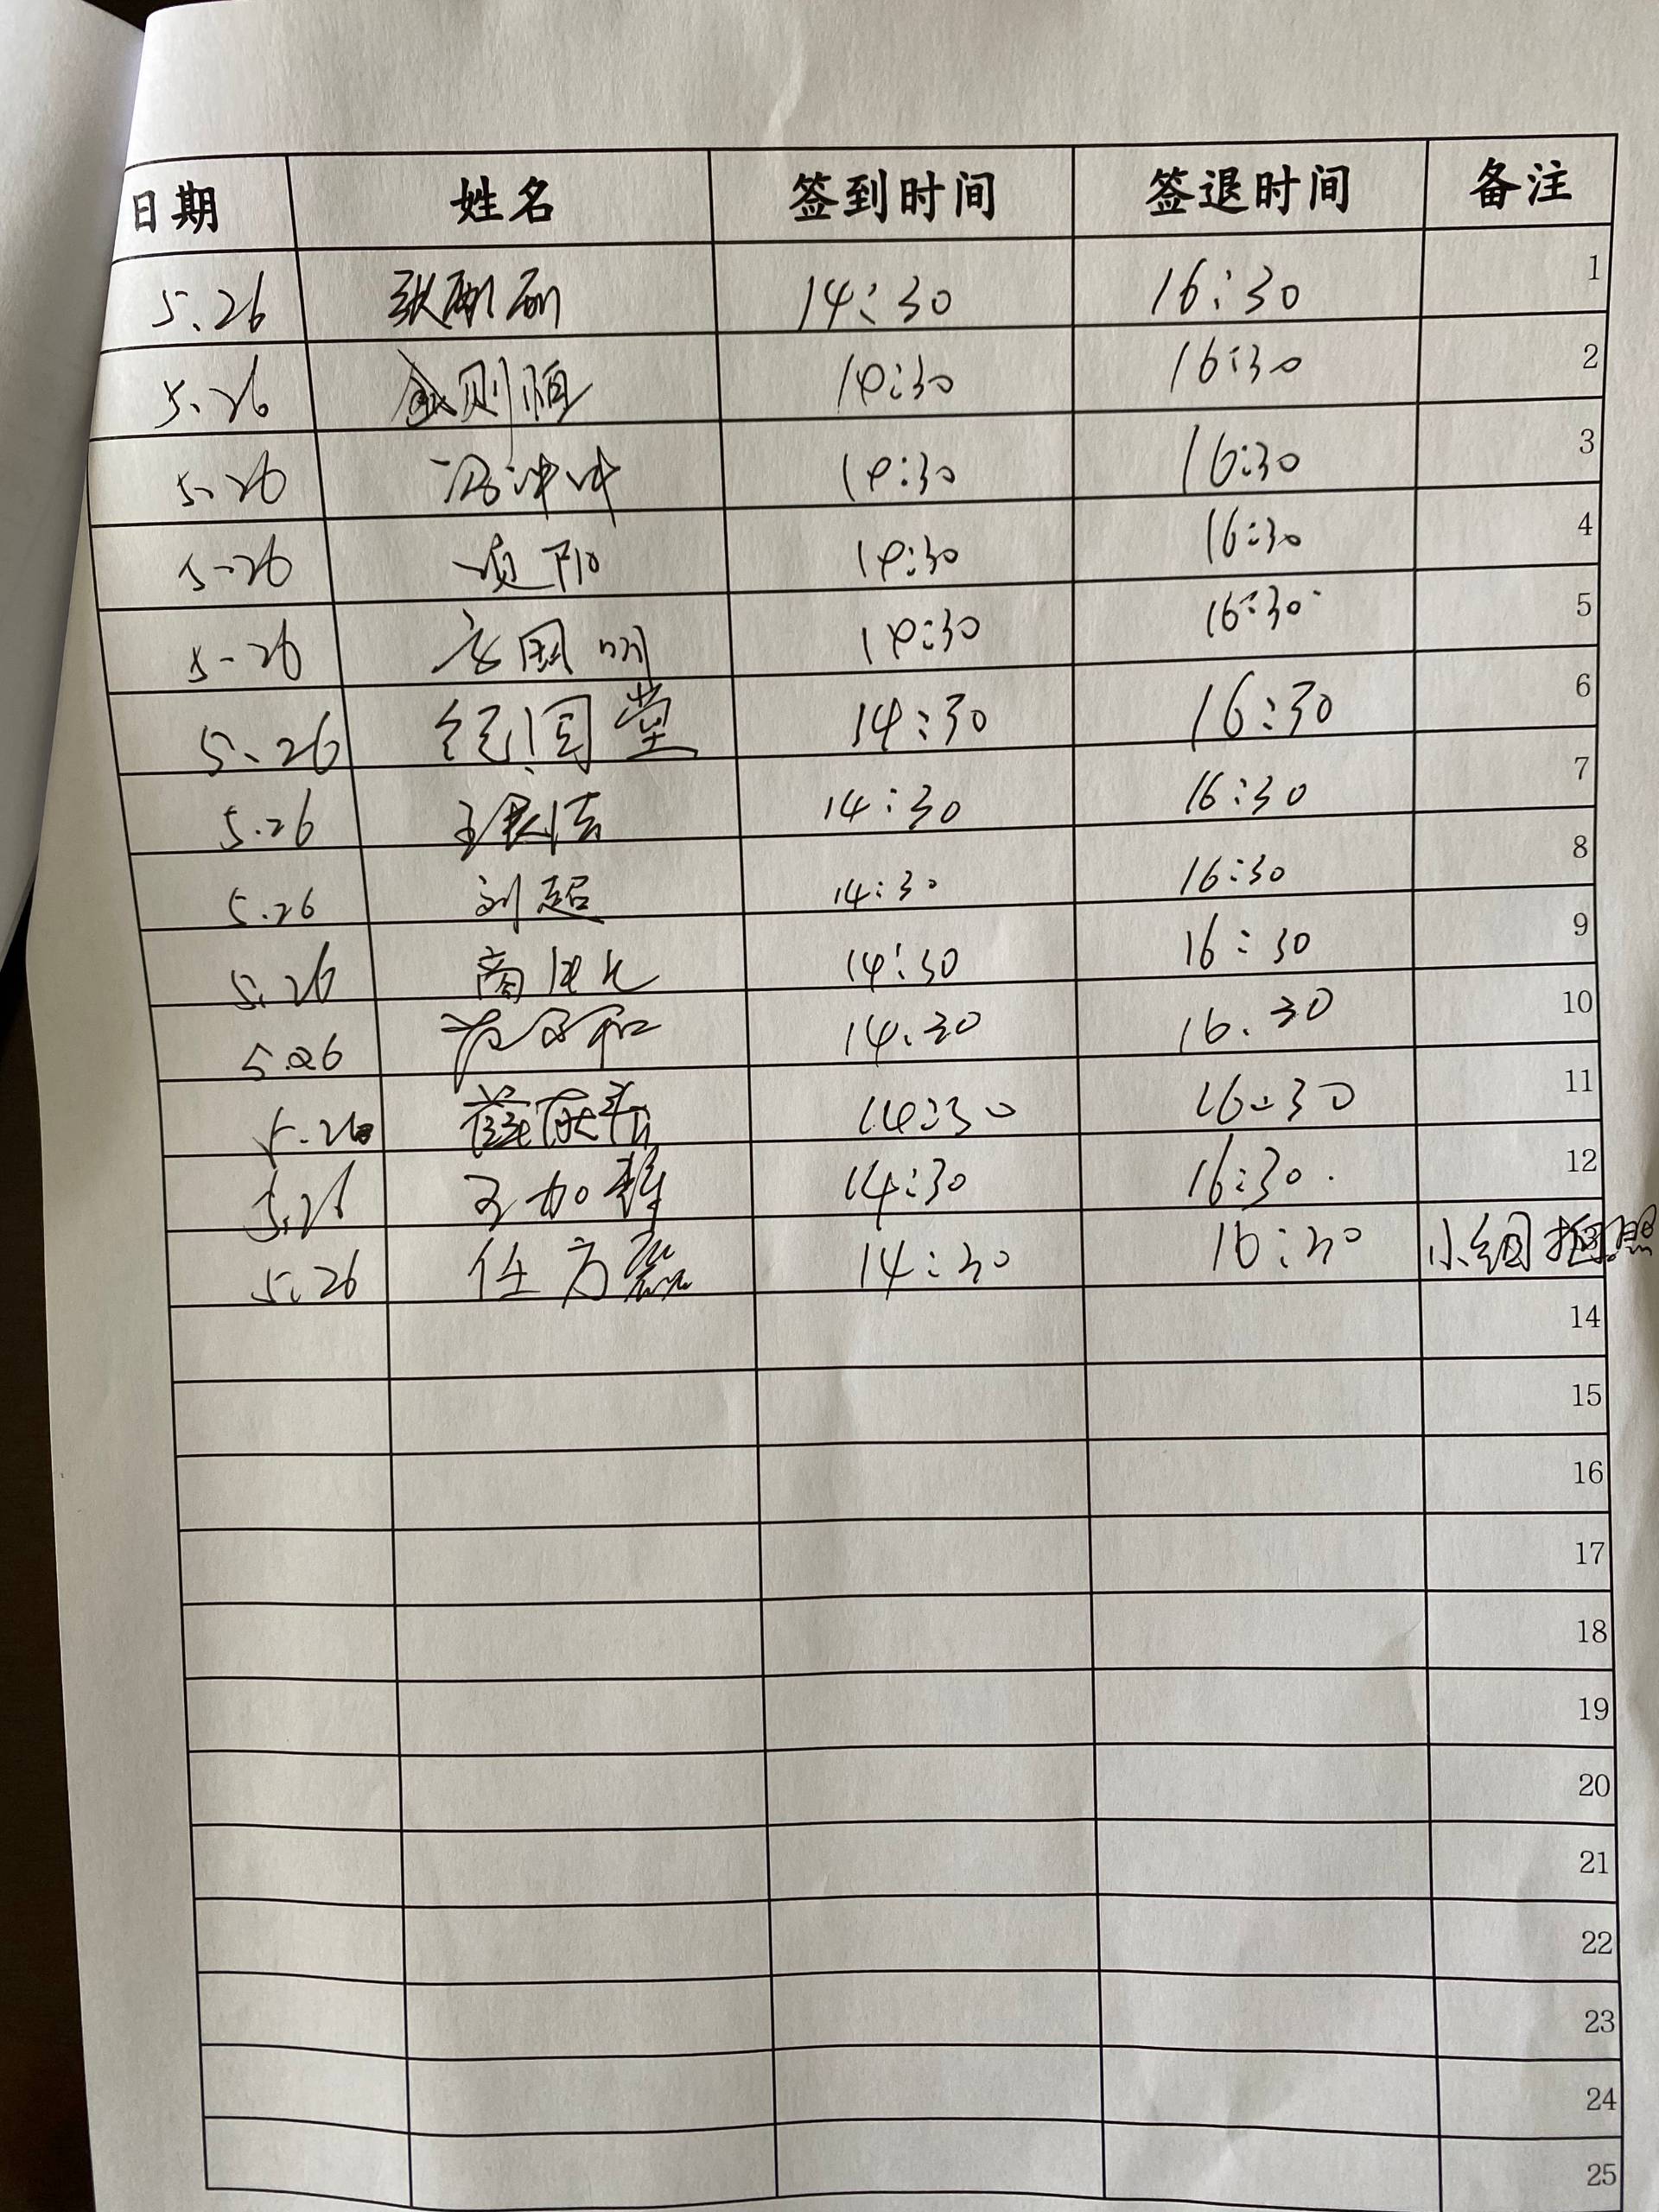 日期 姓名 签到时间 签退时间 备注
5.26 14:30 16:30 1
5.26 则恒 14:30 16:30 2
5.26 冯冲冲 14:30 16:30 3
5.26 14:30 16:30 4
5.26 国明 14:30 16:30 5
5.26 纪国堂 14:30 16:30 6
5.26 14:30 16:30 7
5.26 刘超 14:30 16:30 8
5.26 商 14:30 16:30 9
5.26 14.30 16.30 10
5.26 14:30 16:30 11
5.26 王加 14:30 16:30. 12
5.26 任方磊 14:30 16:30 小组拍照
14
15
16
17
18
19
20
21
22
23
24
25